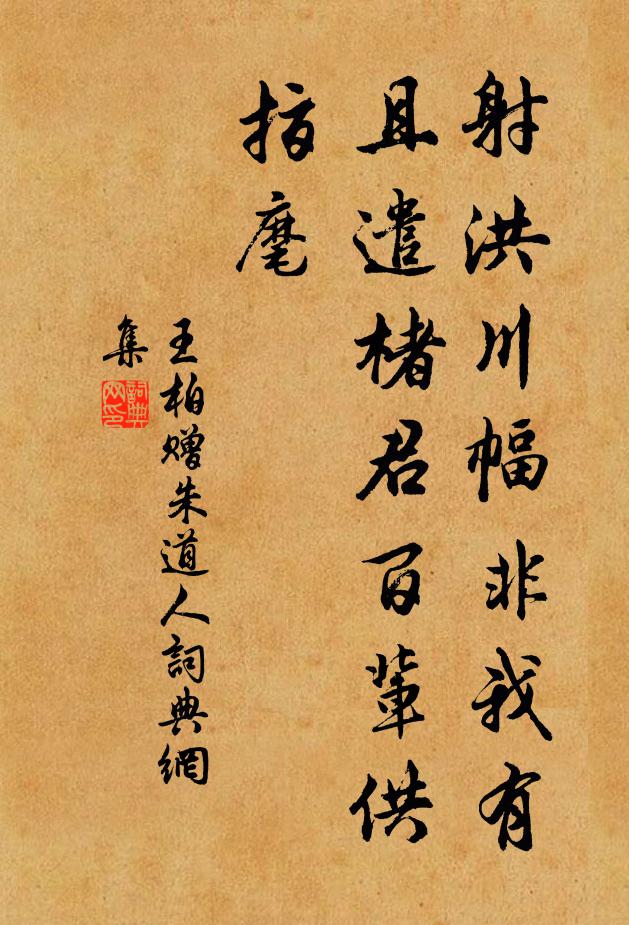 射洪川幅非我有
且遣楮君百輩供
指麾
王柏赠朱道人詞典網
集
詞典
网印